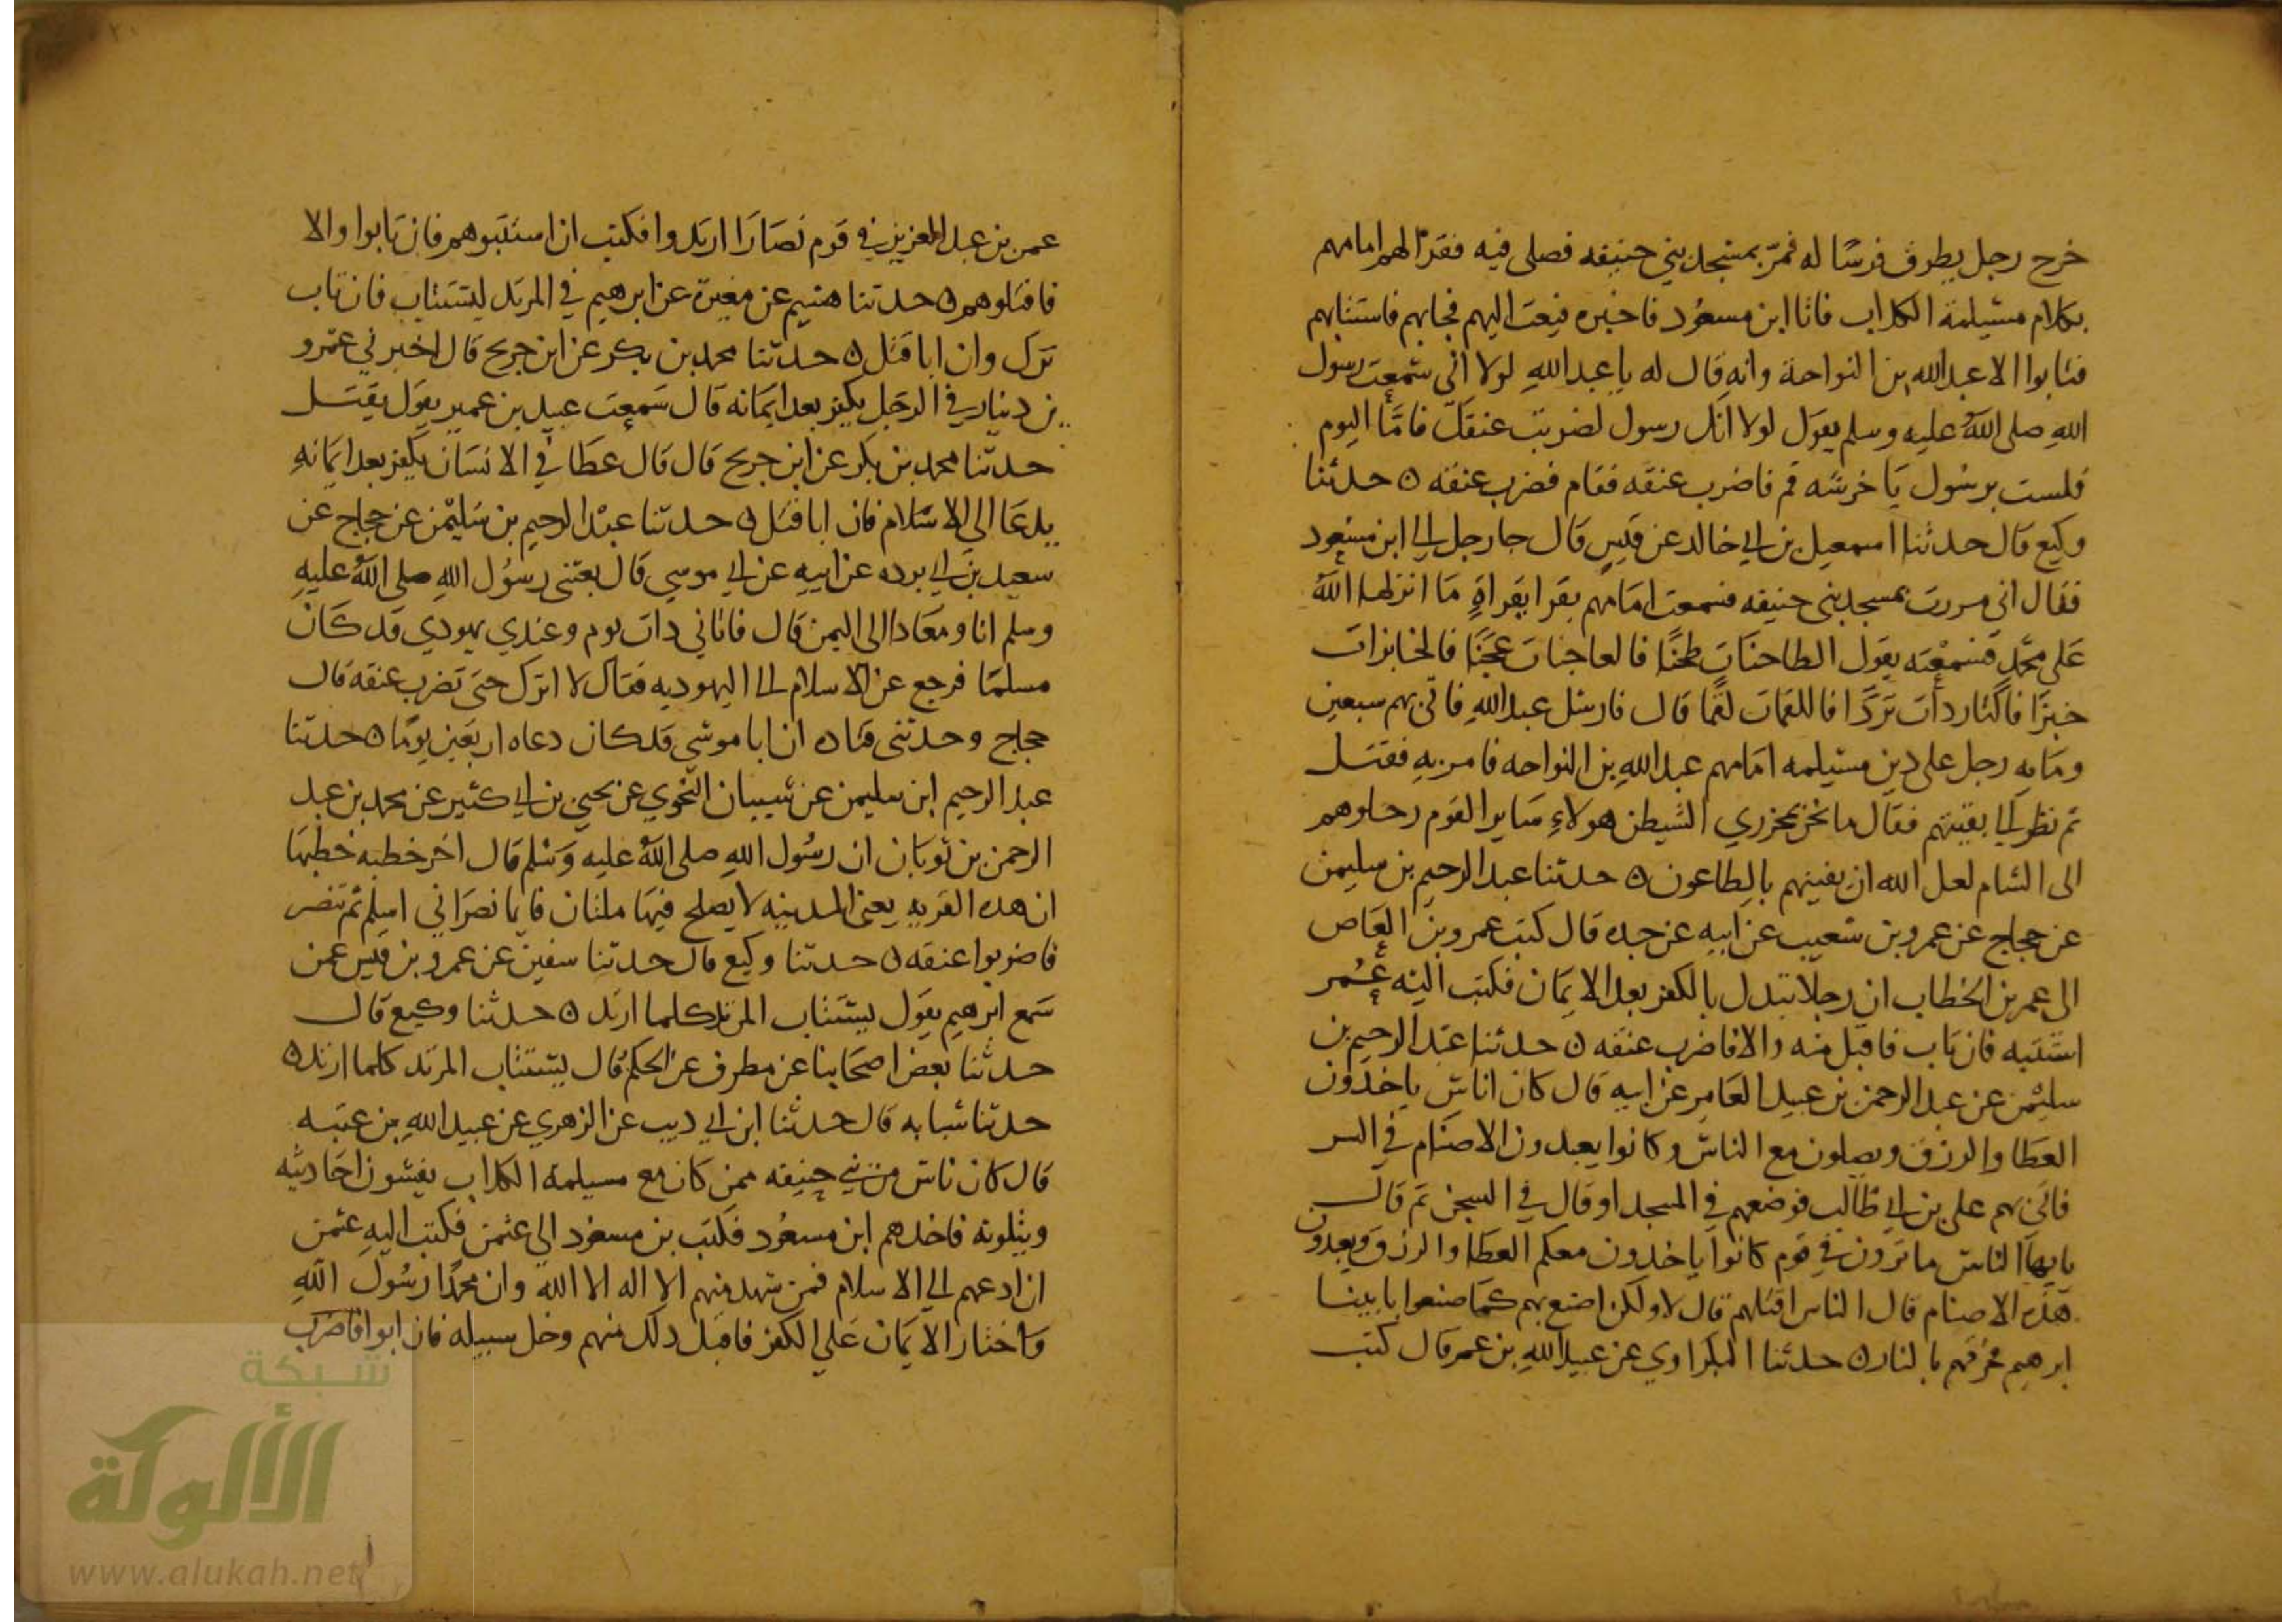 خرج رجل يطرق فرسا له فمر بمسجد بني حنيفه فصلى فيه فقرا لهم امامهم
بكلام مسيلمة الكداب فاتا ابن مسعود فاخبره فبعث اليهم فجابهم فاستتابهم
فتابوا الا عبد الله بن النواحة وانه قال له يا عبد الله لولا اني سمعت رسول
الله صلى الله عليه وسلم يقول لولا انك رسول لضربت عنقك فاما اليوم
فلست برسول يا خرشه قم فاضرب عنقه فقام فضرب عنقه ه حدثنا
وكيع قال حدثنا اسمعيل بن ابي خالد عن قيس قال جا رجل الى ابن مسعود
فقال اني مررت بمسجد بني حنيفه فسمعت امامهم يقرا بقراة ما انزلها الله
على محمد فسمعته يقول الطاحنات طحنا فالعاجنات عجنا فالخابزات
خبزا فالثاردات ثردا فاللقمات لقما قال فارسل عبد الله فاتى بهم سبعين
ومايه رجل على دين مسيلمه امامهم عبد الله بن النواحه فامر به فقتل
ثم نظر الى بقيتهم فقال ما نحن بمجزري الشيطن هولاء ساير القوم رحلوهم
الى الشام لعل الله ان يفنيهم بالطاعون ه حدثنا عبد الرحيم بن سليمن
عن حجاج عن عمرو بن شعيب عن ابيه عن جده قال كتب عمرو بن العاص
الى عمر بن الخطاب ان رجلا تبدل بالكفر بعد الايمان فكتب اليه عمر
استتبه فان تاب فاقبل منه والا فاضرب عنقه ه حدثنا عبد الرحيم بن
سليمن عن عبد الرحمن بن عبيد العامر عن ابيه قال كان اناس ياخذون
العطا والرزق ويصلون مع الناس وكانوا يعبدون الاصنام في السر
فاتى بهم على بن ابي طالب فوضعهم في المسجد او قال في السجن ثم قال
يايها الناس ما ترون في قوم كانوا ياخذون معكم العطا والرزق ويعبدون
هذه الاصنام قال الناس اقتلهم قال لا ولكن اصنع بهم كما صنعوا بابينا
ابرهيم فحرقهم بالنار ه حدثنا البكراوي عن عبيد الله بن عمر قال كتب
عمر بن عبد العزيز في قوم نصارا ارتدوا فكتب ان استتبوهم فان تابوا والا
فاقتلوهم ه حدثنا هشيم عن مغيرة عن ابرهيم في المرتد ليستتاب فان تاب
ترك وان ابا قتل ه حدثنا محمد بن بكر عن ابن جريج قال اخبرني عمرو
بن دينار في الرجل يكفر بعد ايمانه قال سمعت عبيد بن عمير يقول يقتل
حدثنا محمد بن بكر عن ابن جريج قال قال عطا في الانسان يكفر بعد ايمانه
يدعا الى الاسلام فان ابا قتل ه حدثنا عبد الرحيم بن سليمن عن حجاج عن
سعيد بن ابي برده عن ابيه عن ابي موسي قال بعثني رسول الله صلى الله عليه
وسلم انا ومعادا الى اليمن قال فاتاني دات يوم وعندي يهودي قد كان
مسلما فرجع عن الاسلام الى اليهوديه فقال لا انزل حتى تضرب عنقه قال
حجاج وحدثني قتاده ان ابا موسي قد كان دعاه اربعين يوما ه حدثنا
عبد الرحيم ابن سليمن عن شيبان النحوي عن يحيى بن ابي كثير عن محمد بن عبد
الرحمن بن ثوبان ان رسول الله صلى الله عليه وسلم قال اخر خطبه خطبها
ان هده القريه يعني المدينه لا يصلح فيها ملتان فايما نصراني اسلم ثم تنصر
فاضربوا عنقه ه حدثنا وكيع قال حدثنا سفين عن عمرو بن قيس عمن
سمع ابرهيم يقول يستتاب المرتد كلما ارتد ه حدثنا وكيع قال
حدثنا بعض اصحابنا عن مطرف عن الحكم قال يستتاب المرتد كلما ارتد ه
حدثنا شبابه قال حدثنا ابن ابي ديب عن الزهري عن عبيد الله بن عتبه
قال كان ناس من بني حنيفه ممن كان مع مسيلمة الكداب يفشون احاديثه
ويتلونه فاخدهم ابن مسعود فكتب بن مسعود الى عثمن فكتب اليه عثمن
ان ادعهم الى الاسلام فمن شهد منهم الا اله الا الله وان محمدا رسول الله
واختار الايمان على الكفر فاقبل دلك منهم وخل سبيله فان ابوا فاضرب
شبكة
الألوكة
www.alukah.net